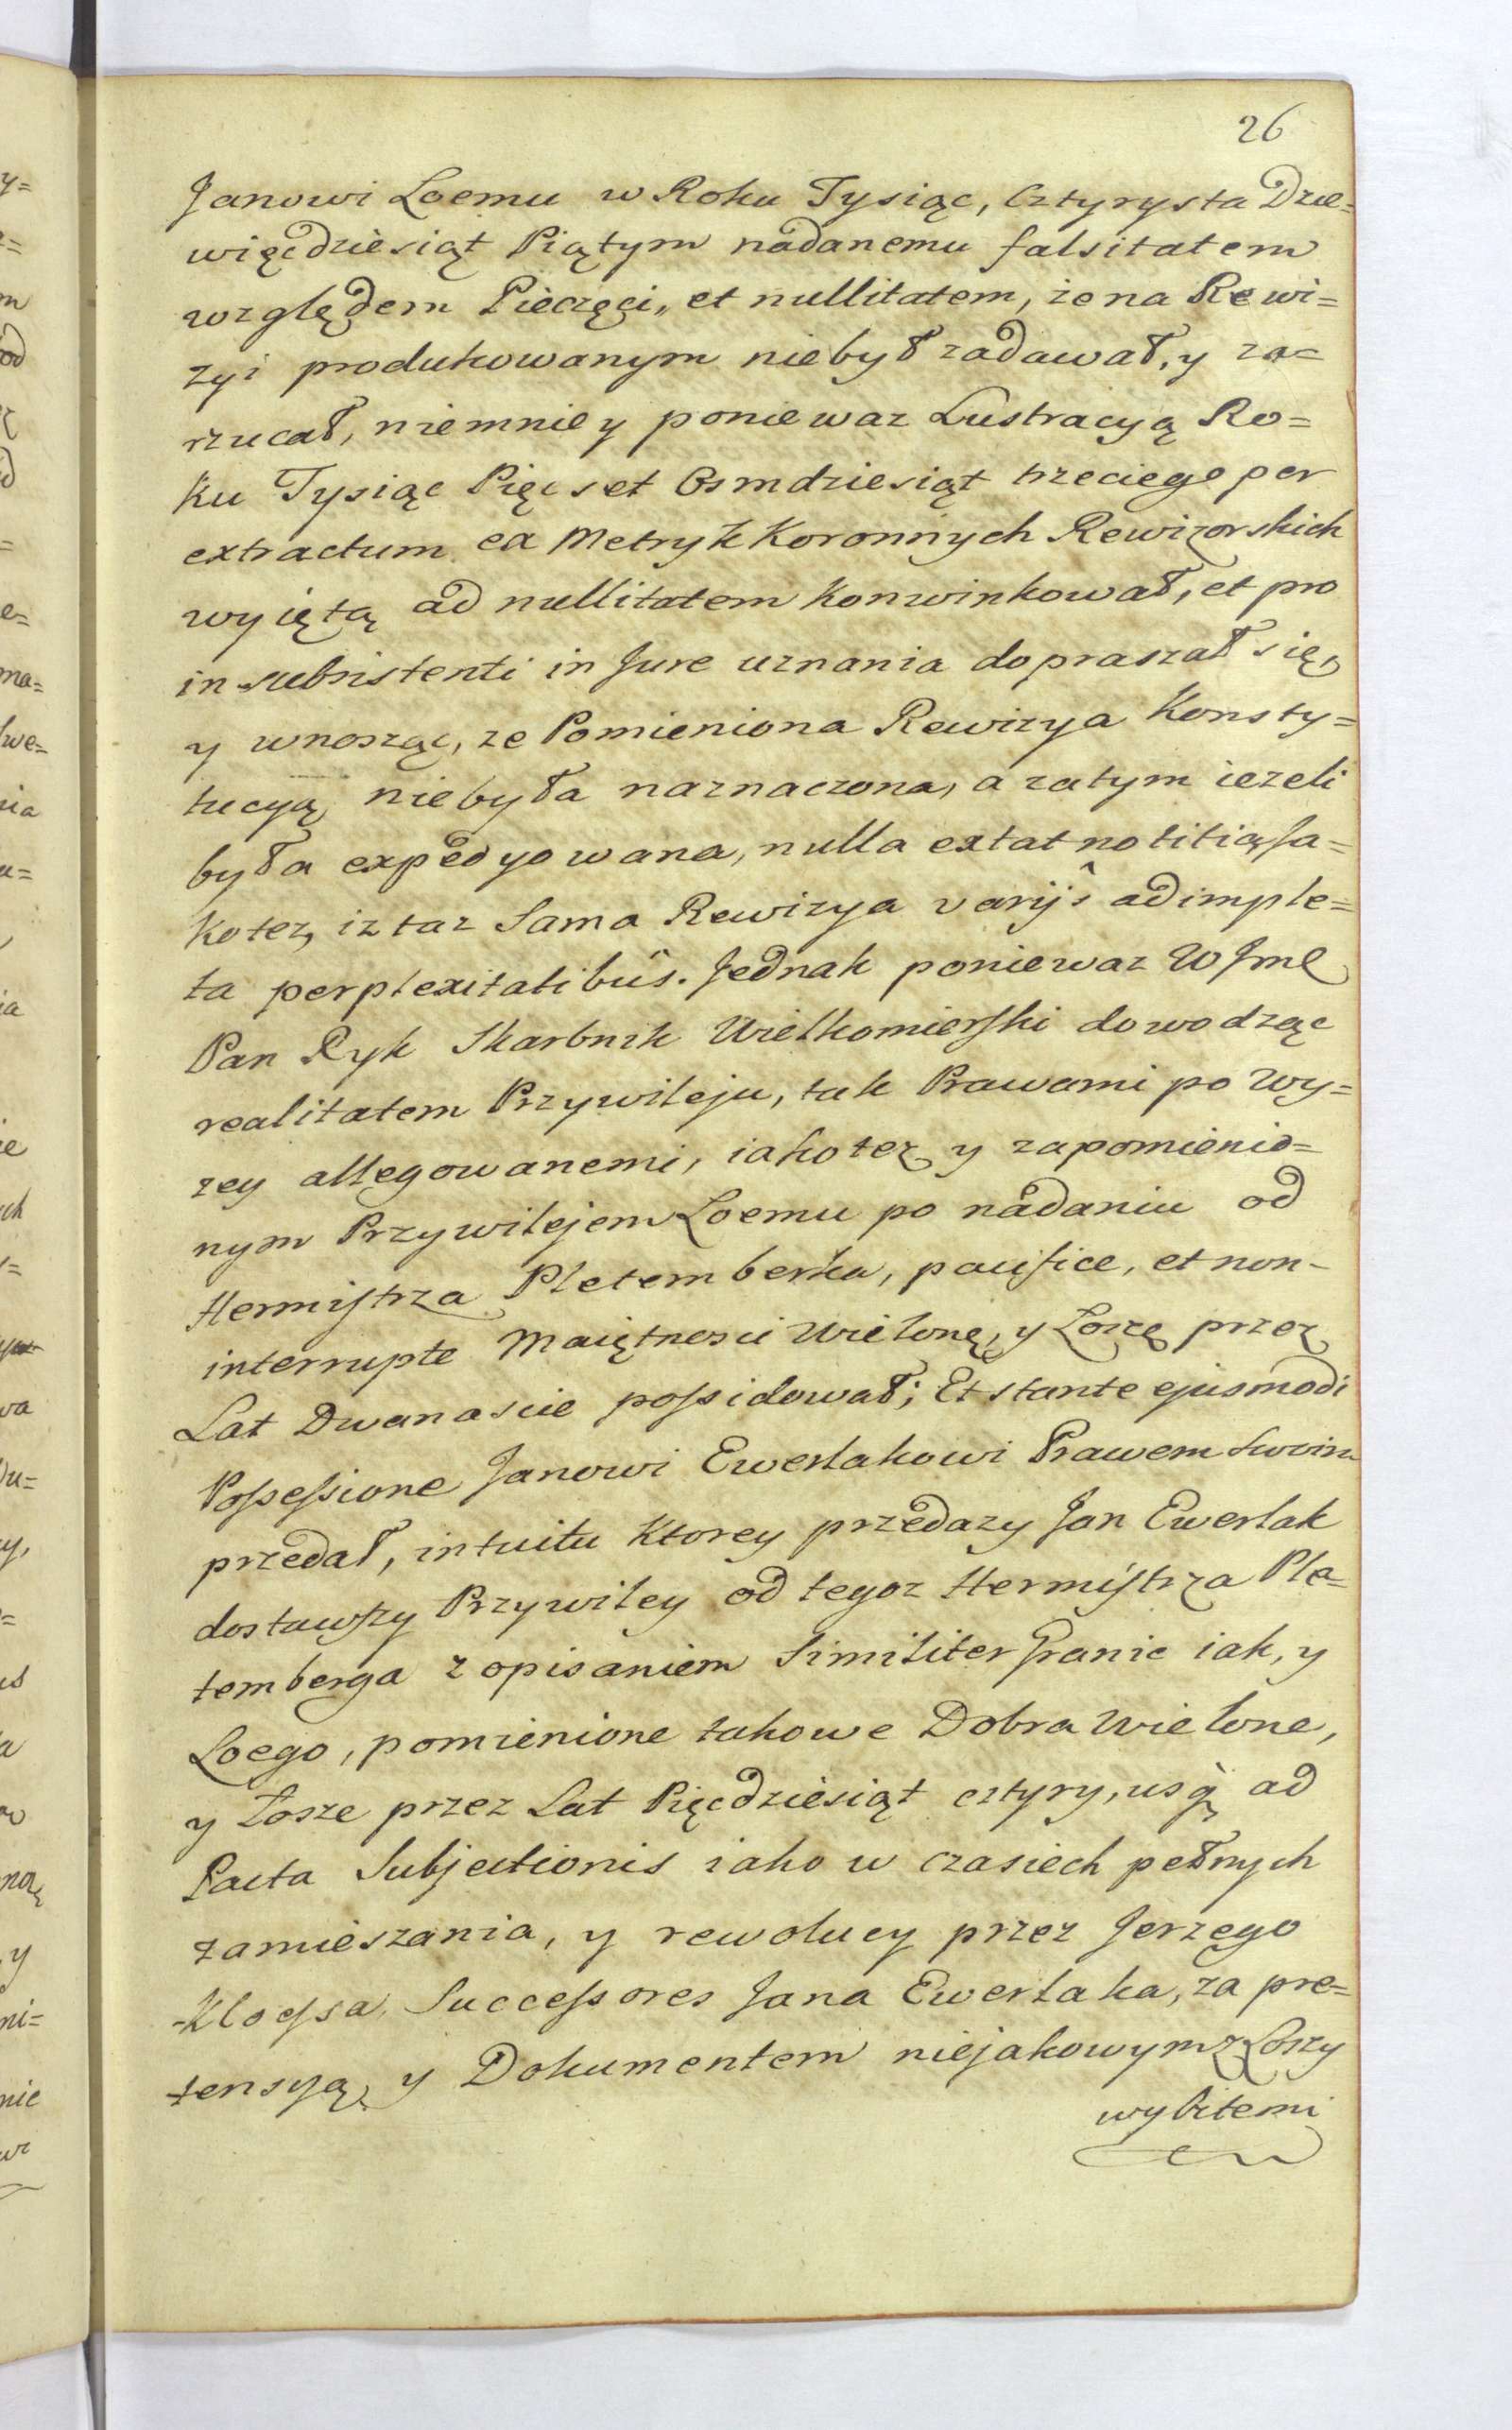 26
Janowi Loemu w Roku Tysiąc, Cztyrysta Dzie=
więcdziesiąt Piątym nadanemu falsitatem
względem Pieczęci, et nullitatem, że na Rewi=
zyi produkowanym niebył zadawał, y za=
rzucał, niemniey poniewaz Lustracyą Ro=
ku Tysiąc Pięcset Osmdziesiąt trzeciego per
extractum ex Metryk Koronnych Rewizorskich
wyiętą ad nullitatem Konwinkował, et pro
in subsistenti in Jure uznania dopraszał się,
y wnosząc, ze Pomieniona Rewizya Konsty=
tucyą niebyła naznaczona, a zatym iezeli
była expedyowana, nulla extat notitia, Ja=
ko tez, iz taz Sama Rewizya varijs adimple=
ta perplexitatibus. Jednak poniewaz WJmć
Pan Ryk Skarbnik Wielkomierski dowodząc
realitatem Przywileju, tak Prawami po wy=
zey allegowanemi, iako tez y zapomienio=
nym Przywilejem Loemu po nadaniu od
Hermistrza Pletemberka, pacifice, et non-
interrupte Maiętnosci Wielonę, y Łoszę przez
Lat Dwanascie possidował; Et stante ejusmodi
Possessione Janowi Ewerlakowi Prawem swoim
przedał, intuitu Ktorey przedazy Jan Ewerlak
dostawszy Przywiley od tegoz Hermistrza Ple=
temberga z opisaniem Similiter Granic iak, y
Loego, pomienione takowe Dobra Wielone,
y Łosze przez Lat Pięcdziesiąt cztyry, usq ad
Pacta Subjectionis iako w czasiech pełnych
zamieszania, y rewolucy przez Jerzego
Kloessa, Successores Jana Ewerlaka, za pre=
tensyą, y Dokumentem niejakowym z Łoszy
wybitemi